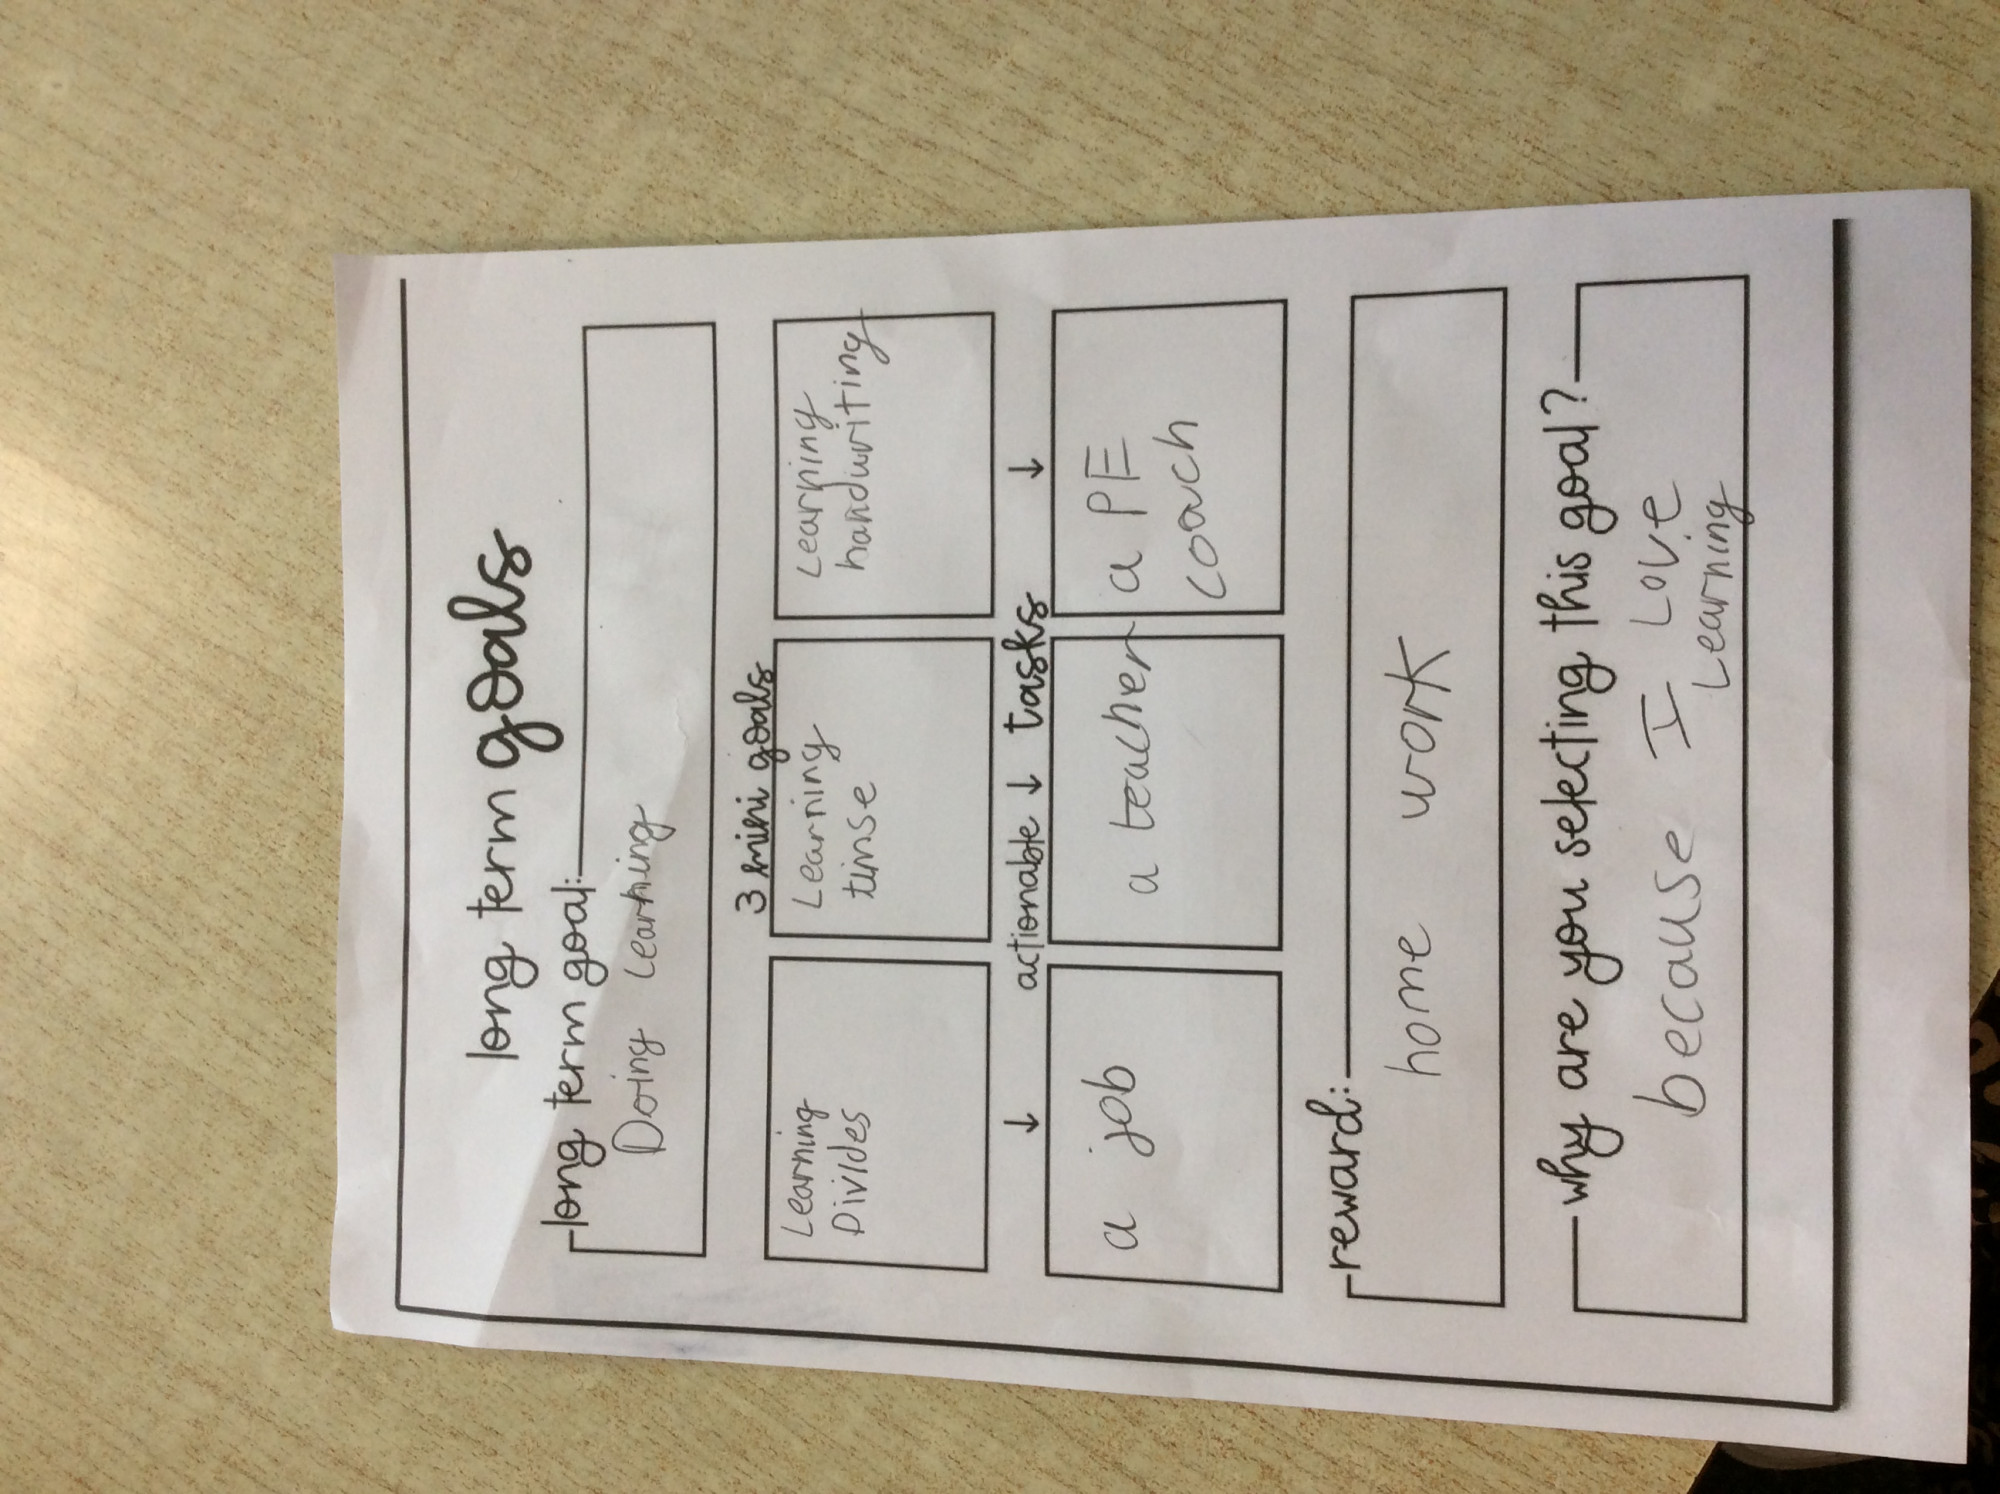 long term goals
long term goal:
Doing Learning
3 mini goals
Learning
Divides
Learning
timse
Learning
handwriting
actionable tasks
a job
a teacher
a PE
coach
reward:
home work
why are you selecting this goal?
because I Love
Learning